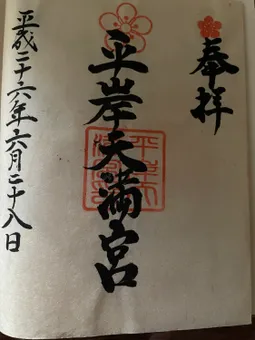 奉拝
平岸天満宮
平成二十六年六月二十八日